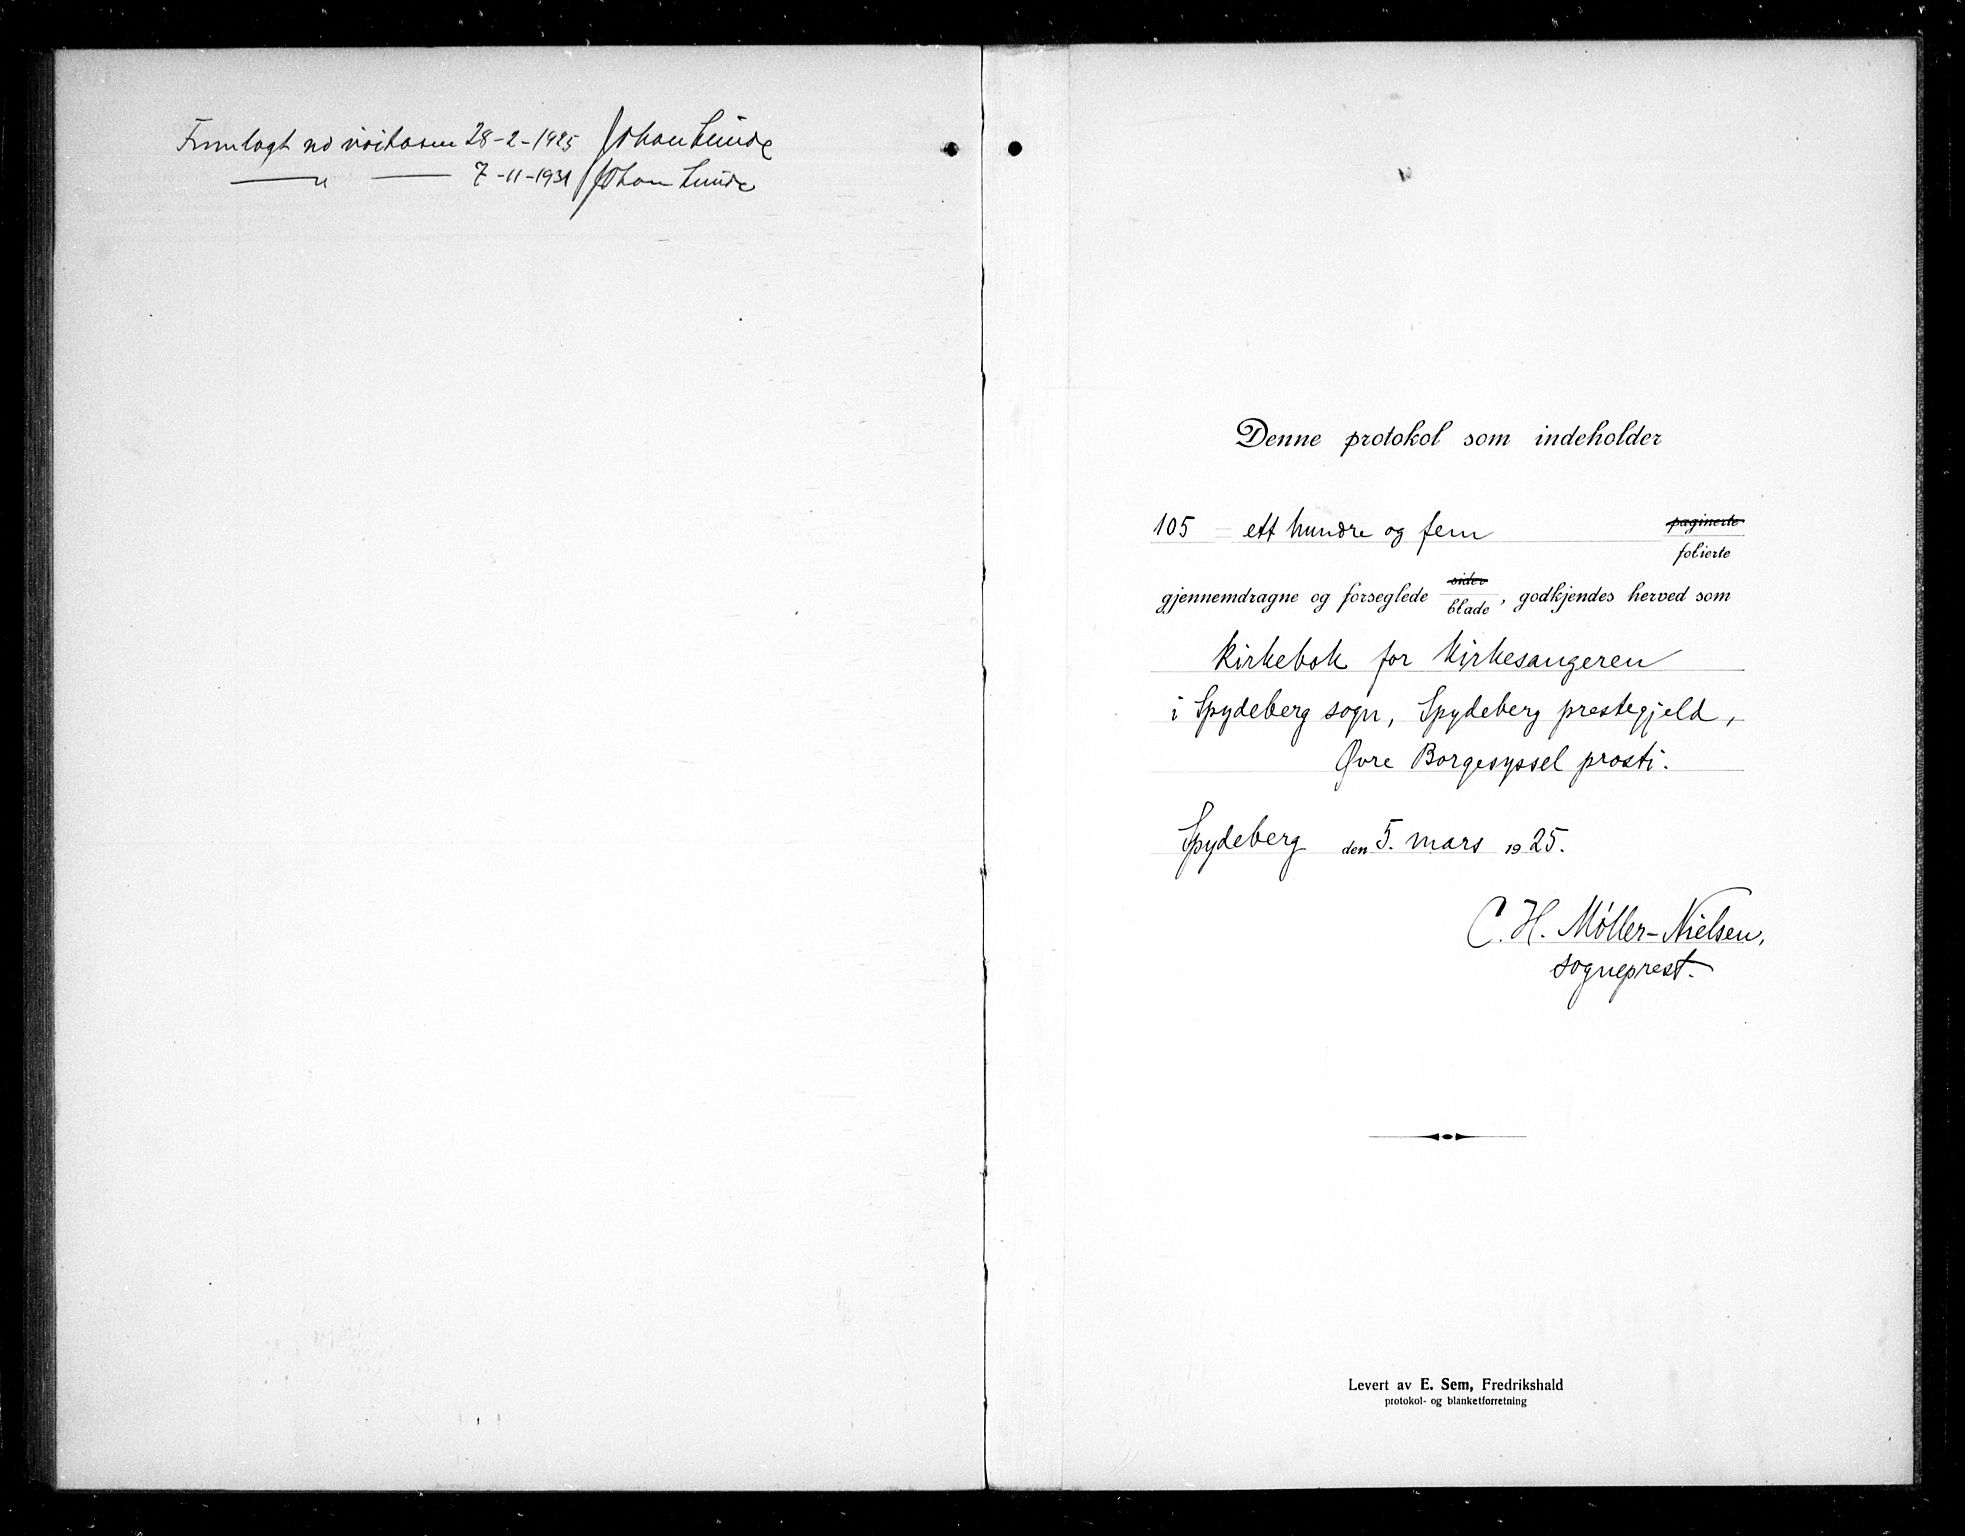 Fremlagt ved visitasen 28-2-1925 Johan Lunde
—〃— 7-11-1931 Johan Lunde
Denne protokol som indeholder
105 = ett hundre og fem paginerte
folierte
gjennemdragne og forseglede sider blade, godkjendes herved som
kirkebok for kirkesangeren
i Spydeberg sogn, Spydeberg prestegjeld,
Øvre Borgesyssel prosti.
Spydeberg den 5. mars 1925.
C. H. Møller-Nielsen,
sogneprest.
Levert av E. Sem, Fredrikshald
protokol- og blanketforretning